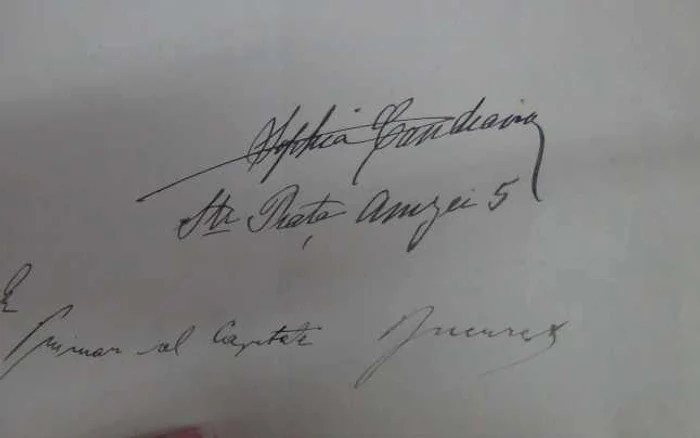 Sophia
Str Piața Amzei 5
Primar al Capitalei București